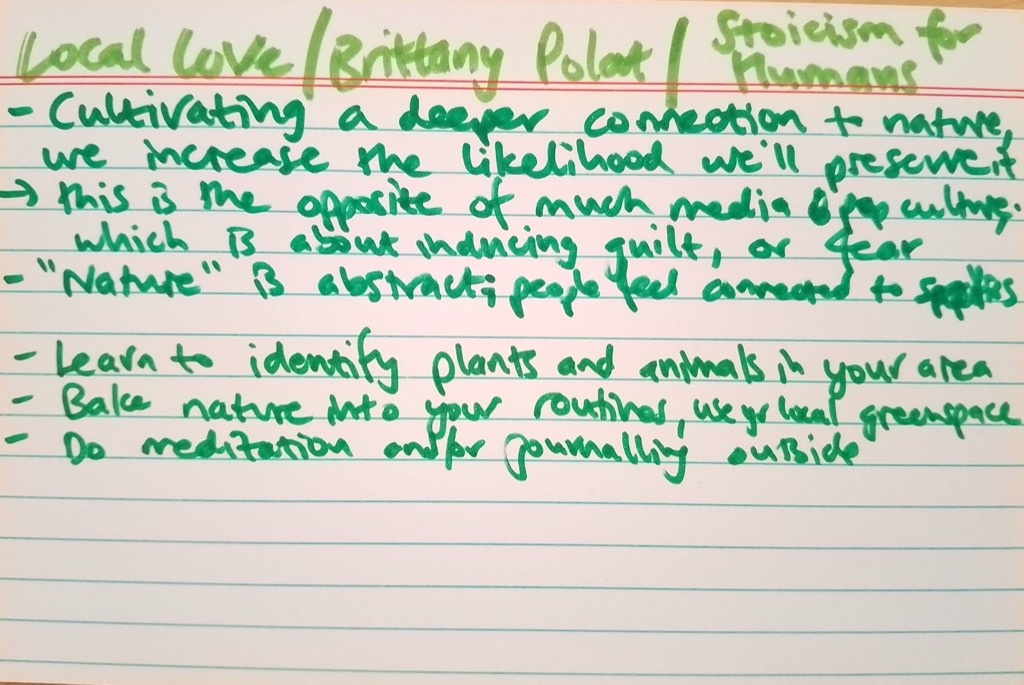 Local Love / Brittany Polat / Stoicism for Humans
- Cultivating a deeper connection + nature,
we increase the likelihood we'll preserve it
→ this is the opposite of much media & pop culture,
which is about inducing guilt, or fear
- "Nature" is abstract; people feel connected to
- Learn to identify plants and animals in your area
- Bake nature into your routines, use yr local greenspace
- Do meditation and/or journalling outside